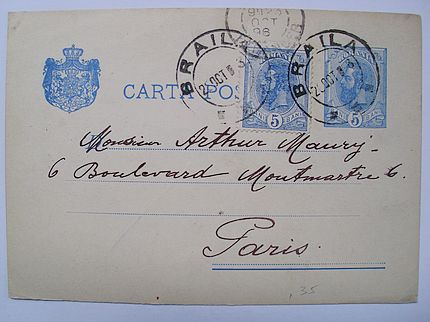 OCT
96
BRAILA
BRAILA
2 OCT
2 OCT
CARTA POS
5
5
Monsieur Arthur Maury
6 Boulevard Montmartre 6.
Paris.
35